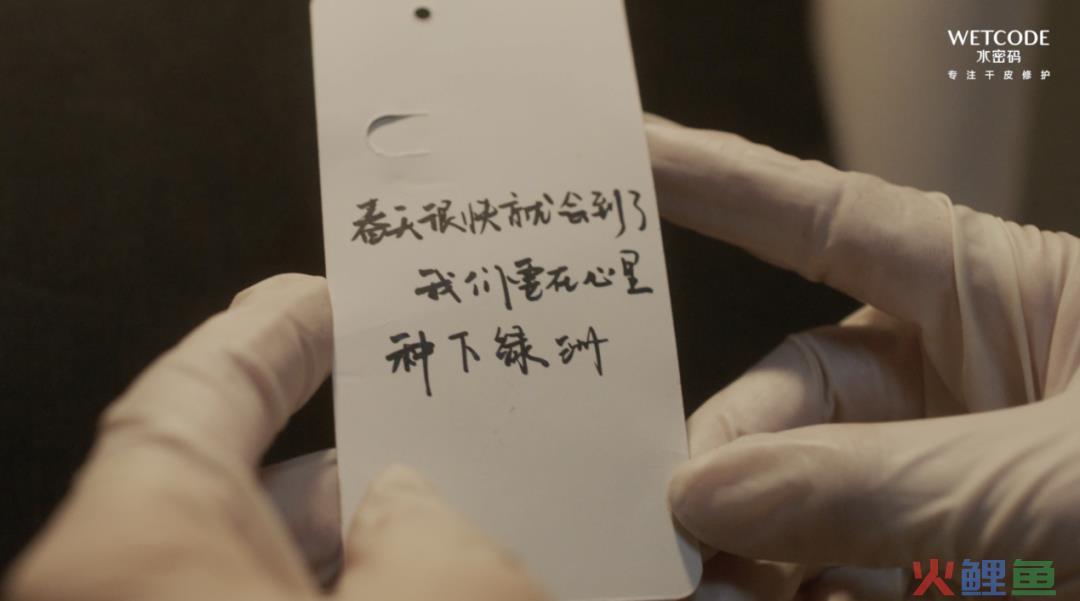 WETCODE
水密码
专注干皮修护
春天很快就会到了
我们要在心里
种下绿洲
火鲤鱼